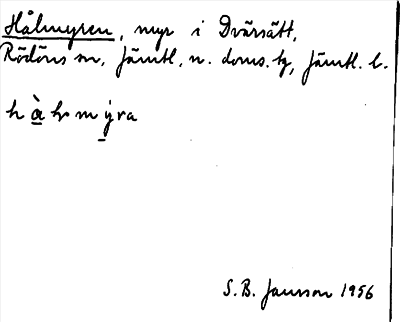 Hålmyren, myr i Dvärsätt,
Rödöns sn, Jämtl. n. doms. tg, Jämtl. l.
S. B. Jansson 1956